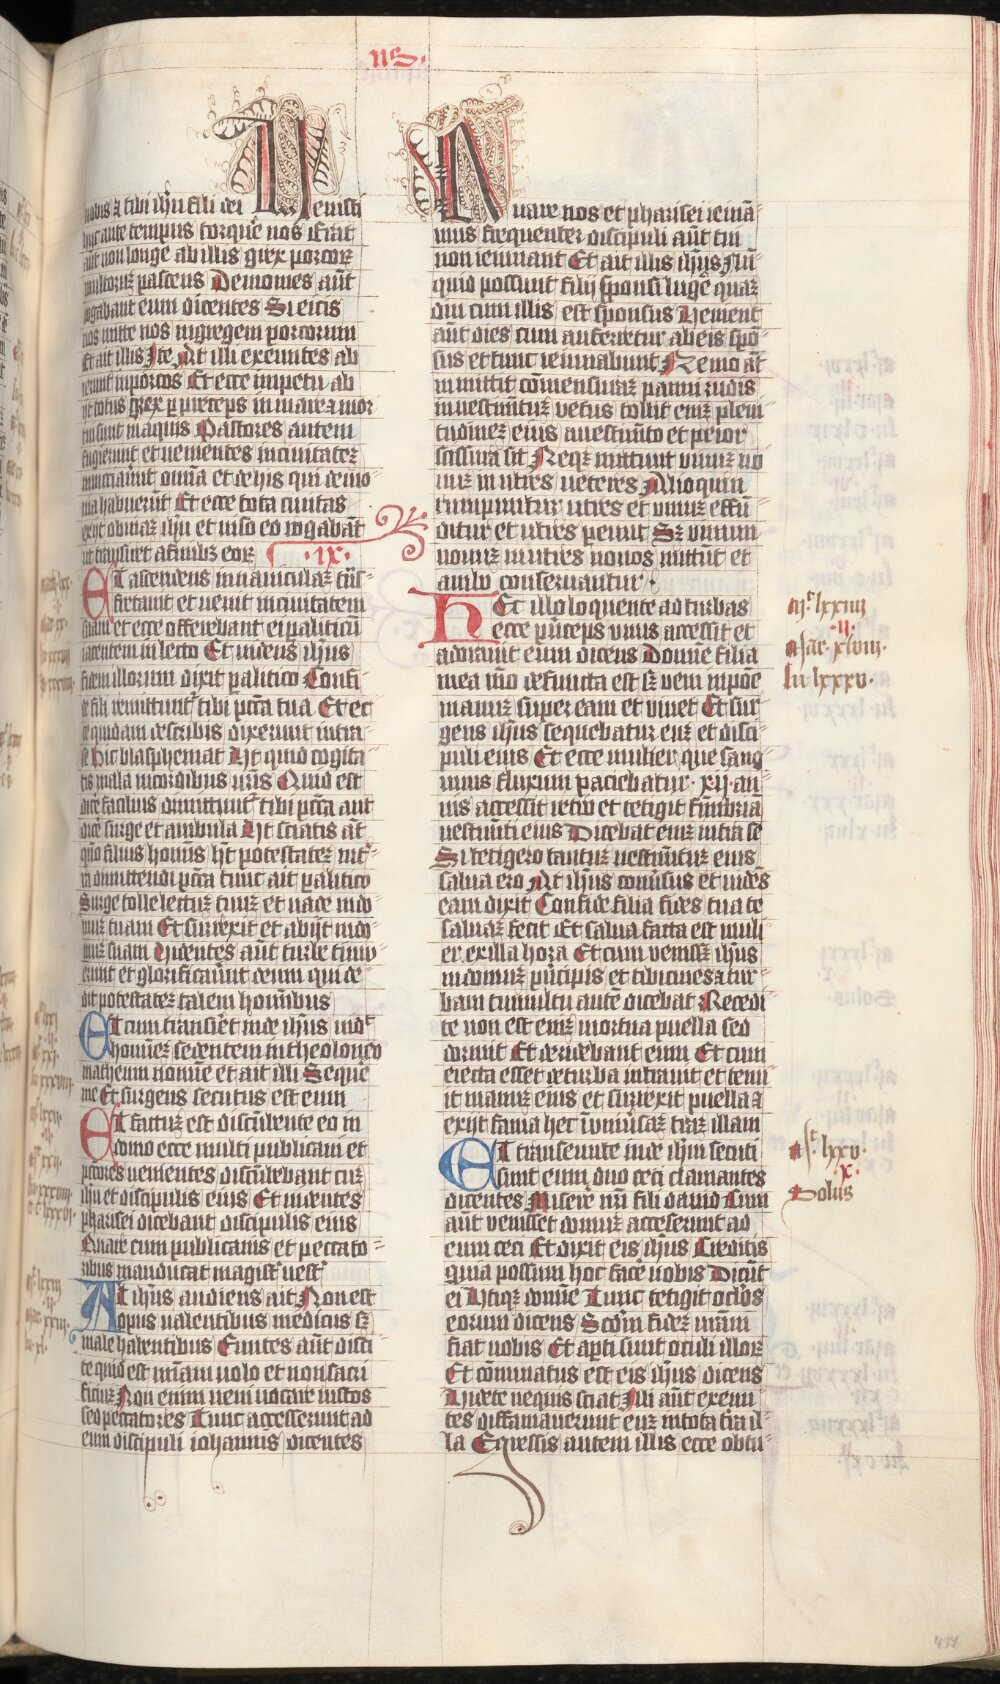 us.
nobis & tibi ihu fili dei Uenisti
huc ante tempus torque nos Erat
aut non longe ab illis grex porcorz
multorz pascens Demones aut
rogabant eum dicentes Si eicis
nos mitte nos in gregem porcorum
Et ait illis Ite At illi exeuntes ab
ierunt in porcos Et ecce impetu ab
ijt totus grex p preceps in mare & mor
tui sunt in aquis Pastores autem
fugierunt et uenientes in ciuitatez
nunciaunt omnia et de his qui demo
nia habuerut Et ecce tota ciuitas
exijt obuiaz ihu et uiso eo rogabat
ut transiret a finibz eorz .ix.
Et ascendens in nauiculaz tns
fretauit et uenit in ciuitatem
suam et ecce offerebant ei paliticu
iacentem in lecto Et uidens ihus
fidem illorum dixit palitico Confi
de fili remittunt tibi pcca tua Et ec
ce quidam de scribis dixerunt intra
se hic blasphemat Ut quid cogita
tis mala in cordibus uris Quid est
dice facilius dimittunt tibi pcca aut
dice surge et ambula Ut sciatis at
qm filius homis ht potestatez in tr
ra dimittendi pcca tunc ait palitico
Surge tolle lectuz tuuz et uade in do
muz tuam Et surrexit et abijt in do
muz suam Uidentes aut turbe timu
erunt et glorificauut deum qui de
dit potestatez talem hominibus
Et cum transiet inde ihus uidt
hominez sedentem in theoloneo
matheum nomine et ait illi Seque
me Et surgens secutus est eum
Et factuz est discubente eo in
domo ecce multi publicani et
pctores uenientes discubebant cuz
ihu et discipulis eius Et uidentes
pharisei dicebant discipulis eius
Quare cum publicanis et peccato
ribus manducat magist uest
At ihus audiens ait Non est
opus ualentibus medicus sz
male habentibus Euntes aut disci
te quid est miam uolo et non sacri
ficiuz Non enim ueni uocare iustos
sed peccatores Tunc accesserunt ad
eum discipuli iohannis dicentes
Quare nos et pharisei ieiuna
mus frequenter discipuli aut tui
non ieiunant Et ait illis ihus Nu
quid possunt filij sponsi luge quaz
diu cum illis est sponsus Uenient
aut dies cum auferetur ab eis spo
sus et tunc ieiunabunt Nemo at
inmittit comensuraz panni rudis
in uestimtuz uetus tollit eniz pleni
tudinez eius a uestimto et peior
scissura fit Neqz mittunt uinuz no
uuz in utres ueteres Alioquin
rumpuntur utres et uinuz effu
ditur et utres peiunt Sz uinum
nouuz in utres nouos mittut et
ambo conseruantur
Hec illo loquente ad turbas
ecce princeps unus accessit et
adorauit eum dicens Domine filia
mea mo defuncta est sz ueni inpone
manuz super eam et uiuet Et sur
gens ihus sequebatur euz et disci
puli eius Et ecce mulier que sang
uinis fluxum paciebatur .xii. an
nis accessit retro et tetigit fimbria
uestimti eius Dicebat eniz intra se
Si tetigero tantuz uestimtuz eius
salua ero At ihus conuisus et uides
eam dixit Confide filia fides tua te
saluaz fecit Et salua facta est muli
er ex illa hora Et cum uenissz ihus
in domuz principis et tibicines & tur
bam tumultu ante dicebat Recedi
te non est eniz mortua puella sed
dormit Et deridebant eum Et cum
eiecta esset de turba intrauit et tenu
it manuz eius et surrexit puella &
exijt fama hec in uniusaz traz illam
Et transeunte inde ihu secuti
sunt eum duo ceci clamantes
dicentes Misere nri fili dauid Cum
aut uenisset domuz accesserunt ad
eum ceci Et dixit eis ihus Creditis
quia possum hoc face uobis Dicut
ei Utiqz domine Tunc tetigit oclos
eorum dicens Scdm fidez uram
fiat uobis Et apti sunt oculi illorz
Et comminatus est eis ihus dicens
Uidete nequis sciat Illi aut exeun
tes diffamauerunt euz in tota tra il
la Egressis autem illis ecce obtu
mr lxxiiii
.ii.
Mar. xlviii.
lu lxxxv.
mr. lxxv.
.x.
Solus
474